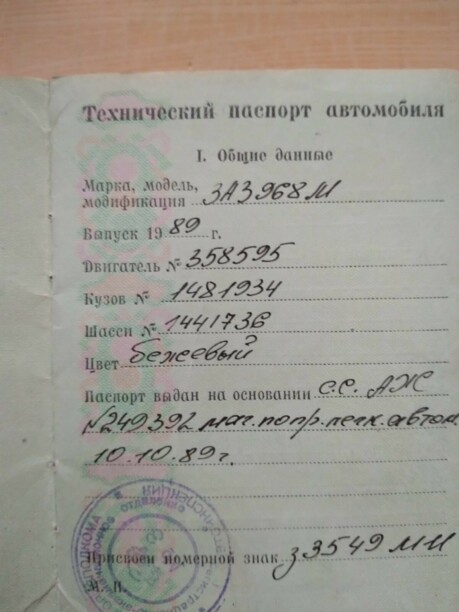 Технический паспорт автомобиля
I. Общие данные
Марка, модель,
модификация ЗАЗ968М
Выпуск 1989 г.
Двигатель № 358595
Кузов № 1481934
Шасси № 1441736
Цвет бежевый
Паспорт выдан на основании с.с. АЖ
№249392 маг.попр.легк.автом.
10.10.89г
Присвоен номерной знак з3549МИ
М. П.